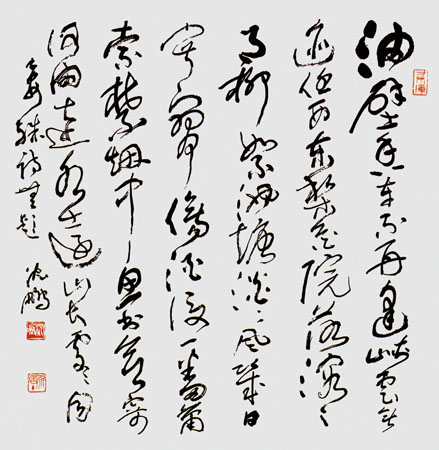 油壁香车不再逢峡云无
迹任西东梨花院落溶溶
月柳絮池塘淡淡风几日
寂寥伤酒后一番萧
索禁烟中鱼书欲寄
何由达水远山长处处同
晏殊诗无题
沈鹏